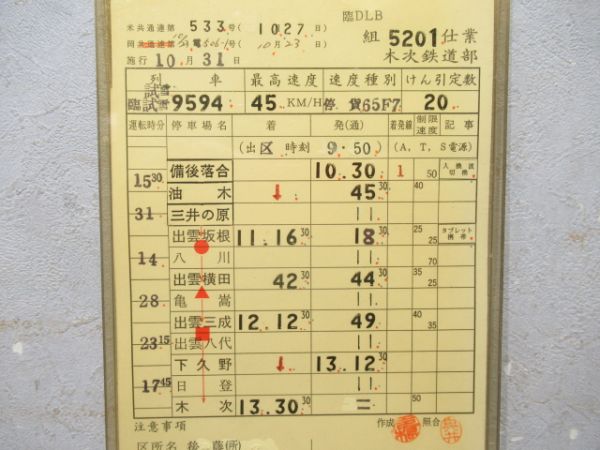 臨DLB
米共通達第 533 号( 1027 日)
組 5201 仕業
号(10月23日)
木次鉄道部
施行 10月31日
列 車 最高速度 速度種別 けん引定数
臨試雪 9594 45 KM/H 停 貨65F7 20
運転時分 停車場名 着 発(通) 着発線 制限速度 記事
(出区 時刻 9.50) (A, T, S電源)
備後落合 10.30 1 50 入換波切換
1530
油木 ↓ 45 30 40 35
31
三井の原 11
出雲坂根 11.16 30 18 30 25 25 タブレット携帯
14
八川 11 75
出雲横田 42 30 44 30 40
28
亀嵩 11 25
出雲三成 12.12 30 49 40 35
2315
出雲八代 11
下久野 ↓ 13.12 30
1745
日登 11 50
木次 13.30 30 =
注意事項 作成 照合
区所名 後藤(所)